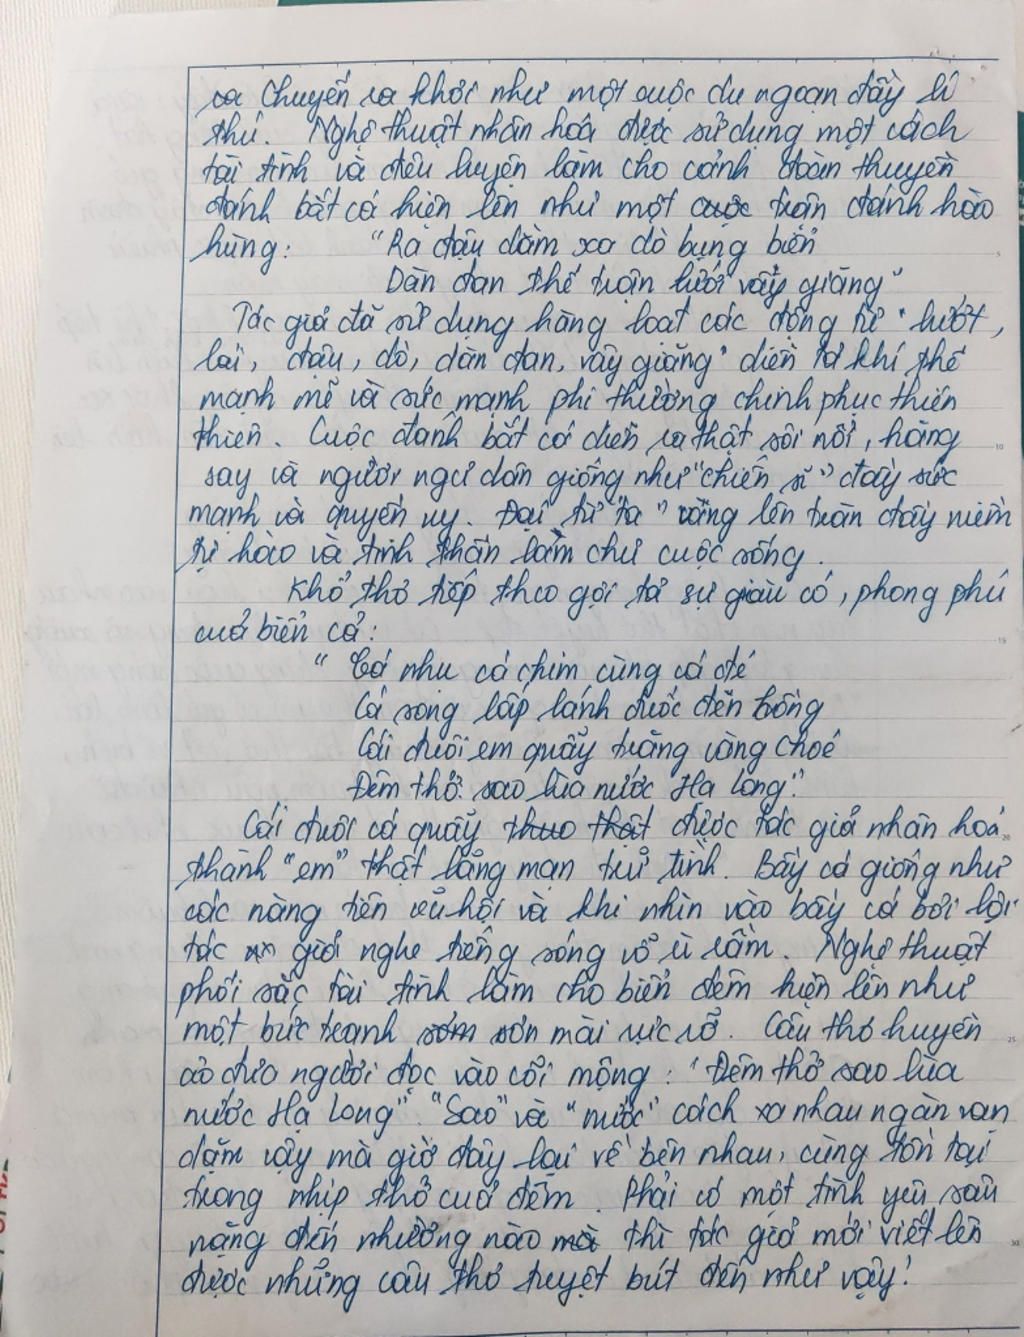 ra chuyến ra khơi như một cuộc du ngoạn đầy lí
thú. Nghệ thuật nhân hoá được sử dụng một cách
tài tình và điêu luyện làm cho cảnh đoàn thuyền
đánh bắt cá hiện lên như một cuộc trận đánh hào
hùng: "Ra đậu dặm xa dò bụng biển
Dàn đan thế trận lưới vây giăng"
Tác giả đã sử dụng hàng loạt các động từ "lướt,
lái, đậu, dò, dàn đan, vây giăng" diễn tả khí thế
mạnh mẽ và sức mạnh phi thường chinh phục thiên
thiên. Cuộc đánh bắt cá diễn ra thật sôi nổi, hăng
say và người ngư dân giống như "chiến sĩ" đầy sức
mạnh và quyền uy. Đại từ "ta" vang lên tràn đầy niềm
tự hào và tinh thần làm chủ cuộc sống.
Khổ thơ tiếp theo gợi tả sự giàu có, phong phú
của biển cả:
"Cá nhụ cá chim cùng cá đé
Cá song lấp lánh đuốc đen hồng
Cái đuôi em quẫy trăng vàng choé
Đêm thở: sao lùa nước Hạ Long."
Cái đuôi cá quẫy thuo thật được tác giả nhân hoá
thành "em" thật lãng mạn trữ tình. Bầy cá giống như
các nàng tiên vũ hội và khi nhìn vào bầy cá bơi lội
tác giả nghe tiếng sóng vỗ ì ầm. Nghệ thuật
phối sắc tài tình làm cho biển đêm hiện lên như
một bức tranh sơm sơn mài rực rỡ. Câu thơ huyền
ảo đưa người đọc vào cõi mộng: "Đêm thở sao lùa
nước Hạ Long". "Sao" và "nước" cách xa nhau ngàn vạn
dặm vậy mà giờ đây lại về bên nhau, cùng tồn tại
trong nhịp thở của đêm. Phải có một tình yêu sâu
nặng đến nhường nào mà thì tác giả mới viết lên
được những câu thơ tuyệt bút đến như vậy!